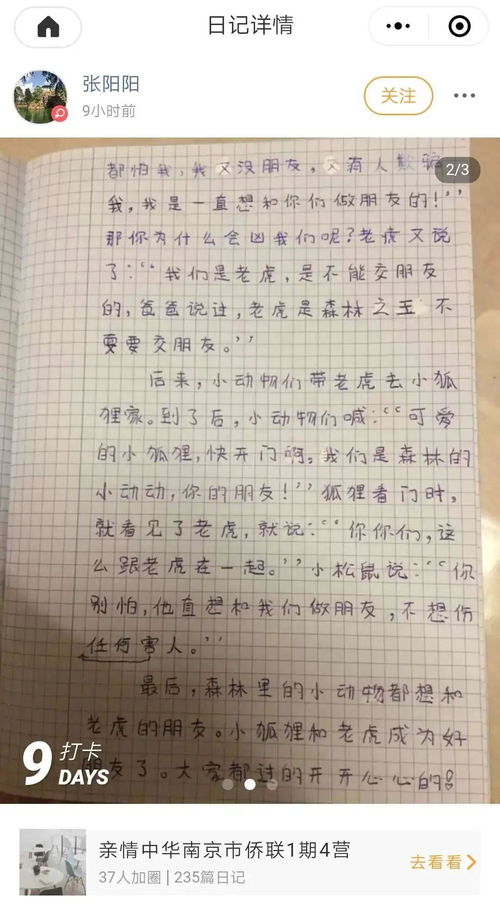 日记详情
张阳阳
9小时前
关注
2/3
都怕我,我又没朋友,又有人欺骗
我,我是一直想和你们做朋友的!”
那你为什么会凶我们呢?老虎又说
了:“我们是老虎,是不能交朋友
的,爸爸说过,老虎是森林之王 不
要要交朋友。”
后来,小动物们带老虎去小狐
狸家。到了后,小动物们喊:“可爱
的小狐狸,快开门啊。我们是森林的
小动动,你的朋友!”狐狸看门时,
就看见了老虎,就说:“你你们,这
么跟老虎在一起。”小松鼠说:“你
别怕,他直想和我们做朋友,不想伤
任何害人。”
最后,森林里的小动物都想和
老虎的朋友。小狐狸和老虎成为好
朋友了。大家都过的开开心心的。
9 打卡
DAYS
亲情中华南京市侨联1期4营
37人加圈 | 235篇日记
去看看